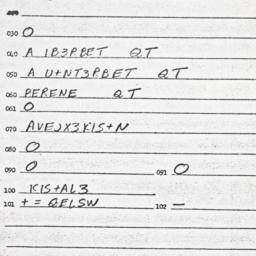 030 O
040 A IB3PBET QT
050 A U+NT3PBET QT
060 PERENE QT
061 O
070 AVEJX3KIS+N
080 O
090 O 091 O
100 KIS+AL3
101 + = QELSW 102 —